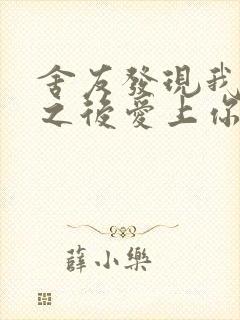 舍友發現我
之後愛上你
薛小樂